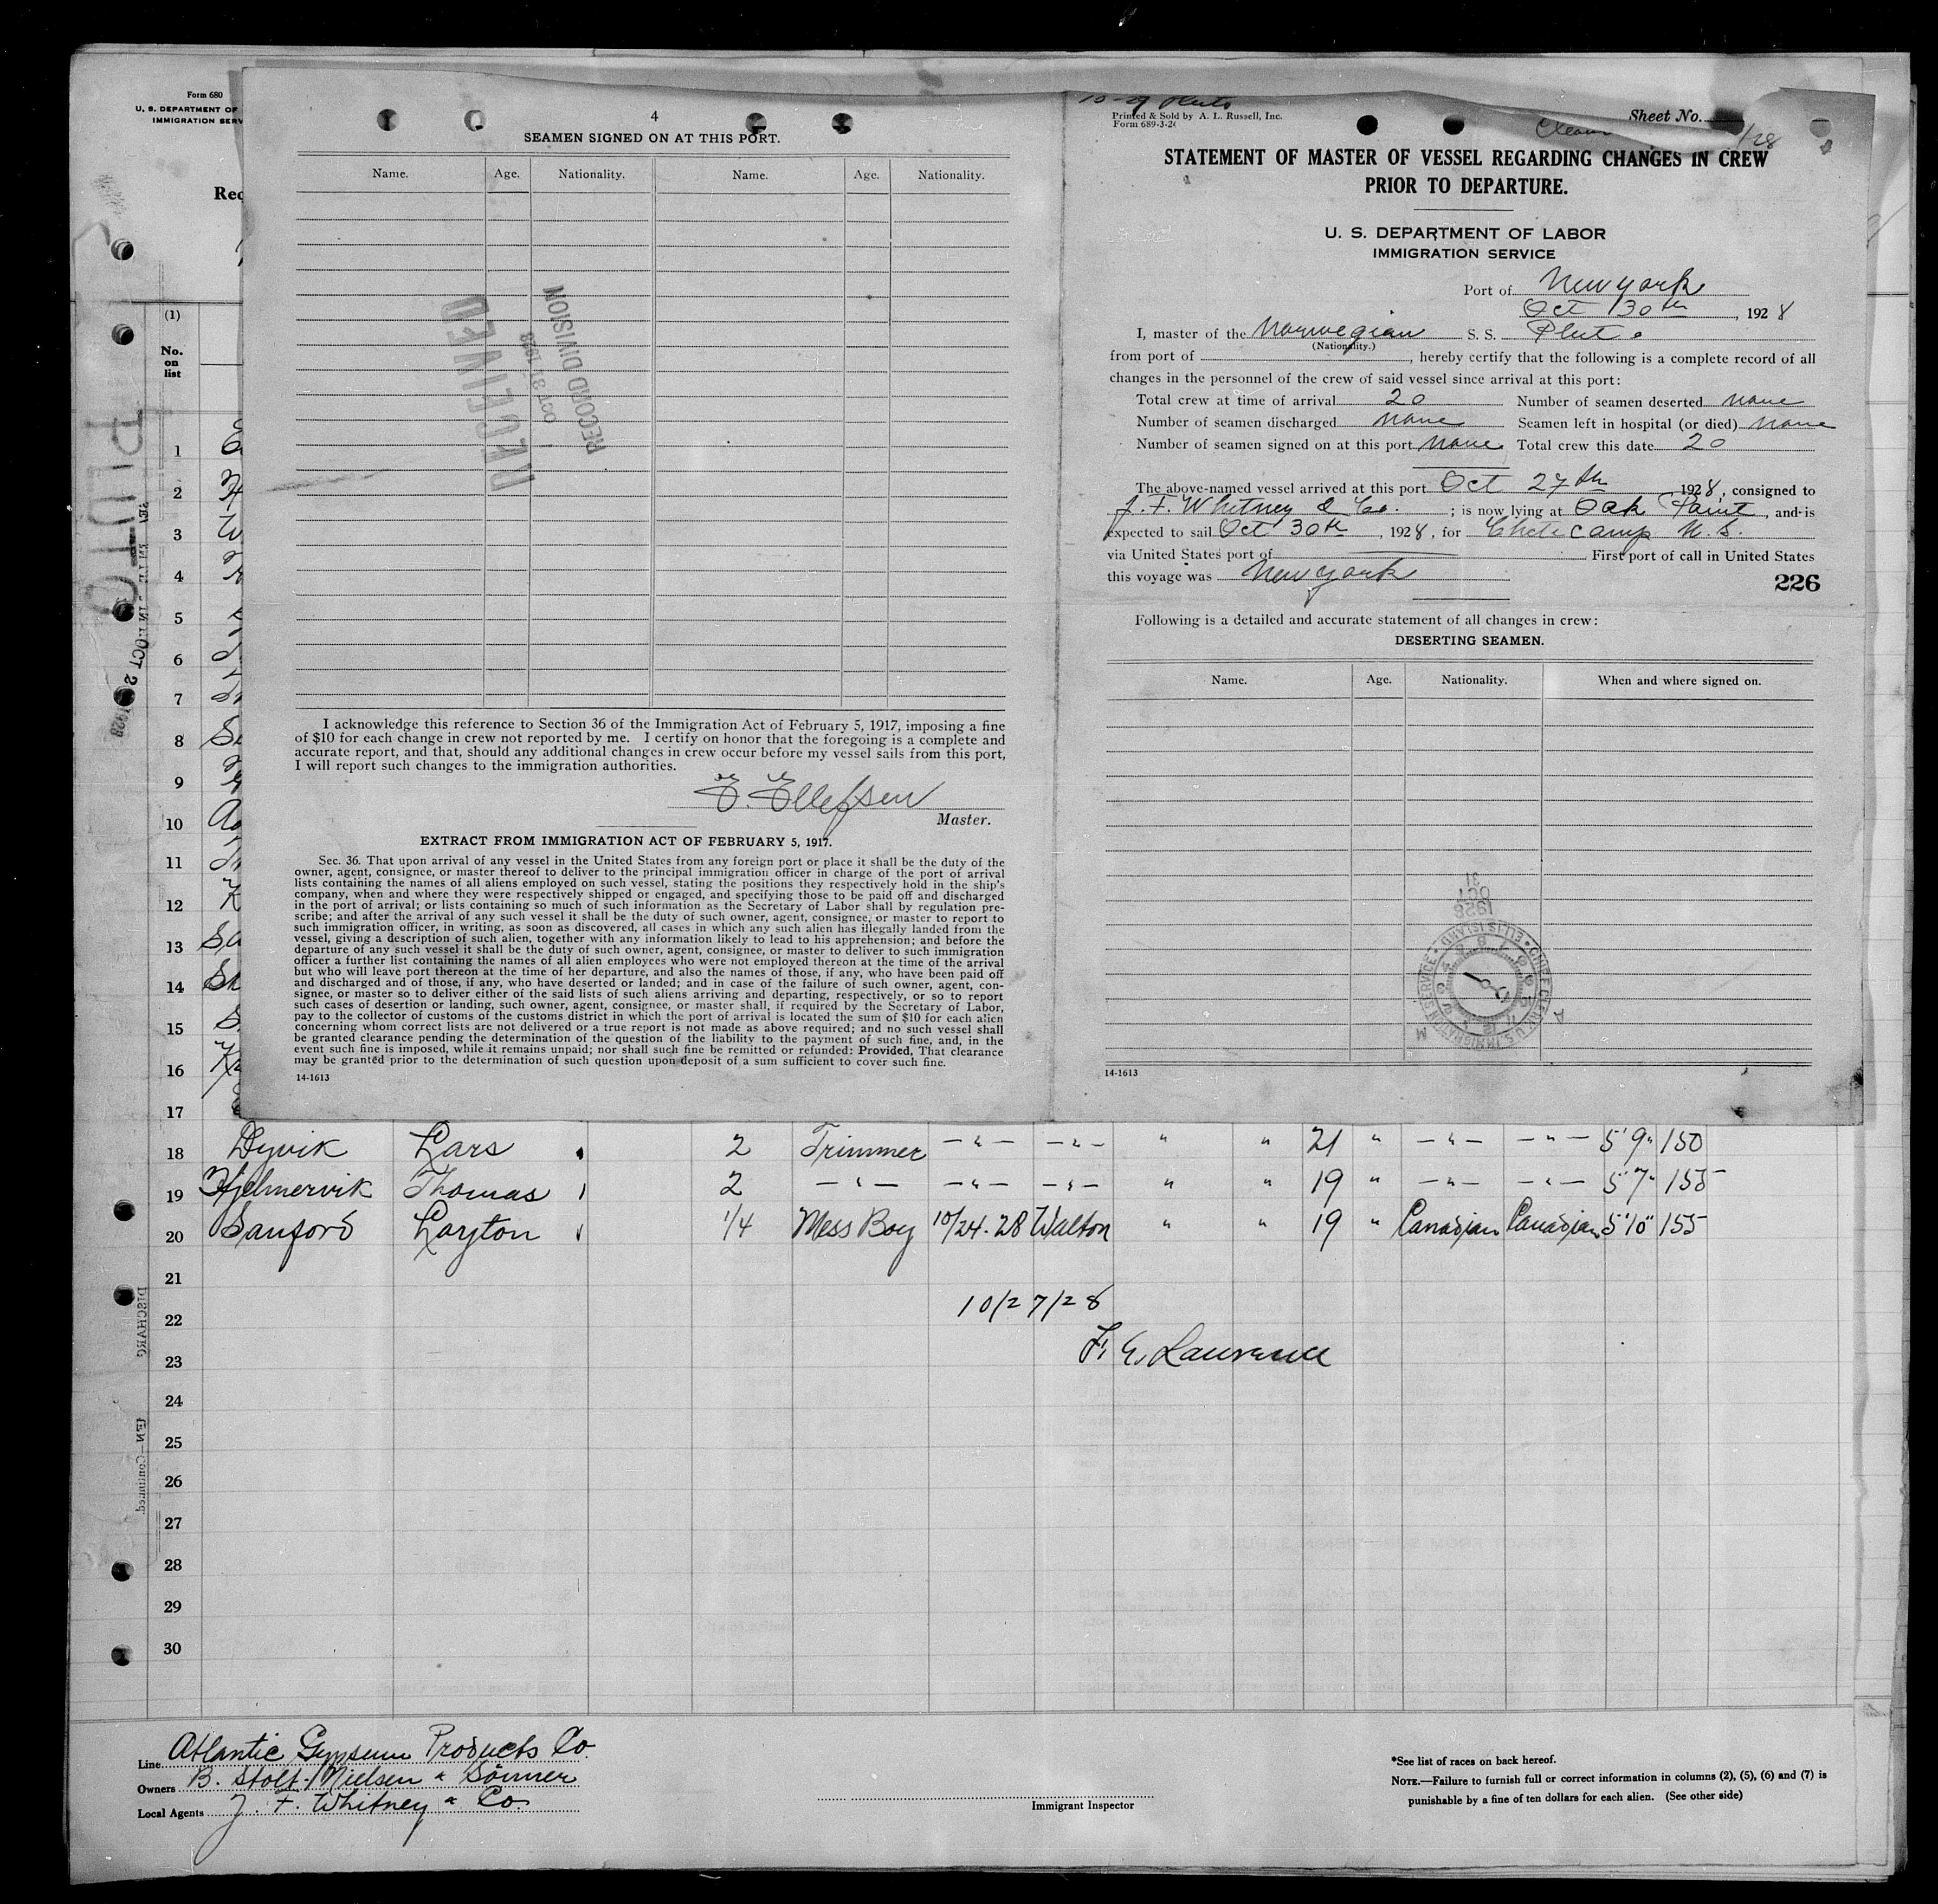 Form 680
U. S. DEPARTMENT OF
IMMIGRATION SERV
Rec
(1)
No.
on
list
4
SEAMEN SIGNED ON AT THIS PORT.
Name. Age. Nationality. Name. Age. Nationality.
RECEIVED
OCT 31 1928
RECORD DIVISION
I acknowledge this reference to Section 36 of the Immigration Act of February 5, 1917, imposing a fine
of $10 for each change in crew not reported by me. I certify on honor that the foregoing is a complete and
accurate report, and that, should any additional changes in crew occur before my vessel sails from this port,
I will report such changes to the immigration authorities.
E. Ellefsen
Master.
EXTRACT FROM IMMIGRATION ACT OF FEBRUARY 5, 1917.
Sec. 36. That upon arrival of any vessel in the United States from any foreign port or place it shall be the duty of the
owner, agent, consignee, or master thereof to deliver to the principal immigration officer in charge of the port of arrival
lists containing the names of all aliens employed on such vessel, stating the positions they respectively hold in the ship's
company, when and where they were respectively shipped or engaged, and specifying those to be paid off and discharged
in the port of arrival; or lists containing so much of such information as the Secretary of Labor shall by regulation pre-
scribe; and after the arrival of any such vessel it shall be the duty of such owner, agent, consignee, or master to report to
such immigration officer, in writing, as soon as discovered, all cases in which any such alien has illegally landed from the
vessel, giving a description of such alien, together with any information likely to lead to his apprehension; and before the
departure of any such vessel it shall be the duty of such owner, agent, consignee, or master to deliver to such immigration
officer a further list containing the names of all alien employees who were not employed thereon at the time of the arrival
but who will leave port thereon at the time of her departure, and also the names of those, if any, who have been paid off
and discharged and of those, if any, who have deserted or landed; and in case of the failure of such owner, agent, con-
signee, or master so to deliver either of the said lists of such aliens arriving and departing, respectively, or so to report
such cases of desertion or landing, such owner, agent, consignee, or master shall, if required by the Secretary of Labor,
pay to the collector of customs of the customs district in which the port of arrival is located the sum of $10 for each alien
concerning whom correct lists are not delivered or a true report is not made as above required; and no such vessel shall
be granted clearance pending the determination of the question of the liability to the payment of such fine, and, in the
event such fine is imposed, while it remains unpaid; nor shall such fine be remitted or refunded: Provided, That clearance
may be granted prior to the determination of such question upon deposit of a sum sufficient to cover such fine.
14-1613
10-29 Pluto
Printed & Sold by A. L. Russell, Inc.
Form 689-3-2
Sheet No.
STATEMENT OF MASTER OF VESSEL REGARDING CHANGES IN CREW
PRIOR TO DEPARTURE.
U. S. DEPARTMENT OF LABOR
IMMIGRATION SERVICE
Port of New york
Oct 30th, 1928
I, master of the Norwegian S. S. Pluto
(Nationality.)
from port of , hereby certify that the following is a complete record of all
changes in the personnel of the crew of said vessel since arrival at this port:
Total crew at time of arrival 20 Number of seamen deserted none
Number of seamen discharged none Seamen left in hospital (or died) none
Number of seamen signed on at this port none Total crew this date 20
The above-named vessel arrived at this port Oct 27th 1928, consigned to
J. F. Whitney & Co. ; is now lying at Oak Point, and is
expected to sail Oct 30th, 1928, for Cheticamp N. S.
via United States port of First port of call in United States
this voyage was New york
226
Following is a detailed and accurate statement of all changes in crew:
DESERTING SEAMEN.
Name. Age. Nationality. When and where signed on.
OCT 31 1928
CHIEF CLERK U.S. IMMIGRATION SERVICE • ELLIS ISLAND •
14-1613
PLUTO
1
2
3
4
5
6
7
8
9
10
11
12
13
14
15
16
17
18 Dyvik Lars 2 Trimmer —"— —"— " " 21 " —"— —"— 5'9" 150
19 Hjelmervik Thomas 2 —"— —"— —"— " " 19 " —"— —"— 5'7" 155
20 Sanford Layton 1/4 Mess Boy 10/24-28 Walton " " 19 " Canadian Canadian 5'10" 155
21
22 10/27/28
23 F. E. Lawrence
24
25
26
27
28
29
30
Line Atlantic Gypsum Products Co.
Owners B. Stolt-Nielsen & Sönner
Local Agents J. F. Whitney & Co.
Immigrant Inspector
*See list of races on back hereof.
NOTE.—Failure to furnish full or correct information in columns (2), (5), (6) and (7) is
punishable by a fine of ten dollars for each alien. (See other side)